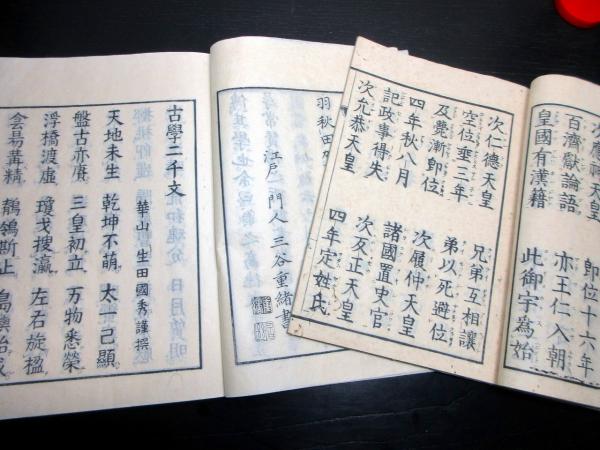 即位十六年
百濟獻論語 亦王仁入朝
皇國有漢籍 此御宇爲始
次仁德天皇 兄弟互相讓
空位垂三年 弟以死避位
及甍漸即位 次履仲天皇
四年秋八月 諸國置史官
記政事得失 次反正天皇
次允恭天皇 四年定姓氏
羽秋田
江戸 門人 三谷重緒書
古學二千文
華山 生田國秀謹撰
天地未生 乾坤不萌 太一己顯
盤古亦 三皇初立 万物悉榮
浮橋渡虚 瓊戈搜瀛 左右旋楹
会昜冓精 鶺鴒斯止 島嶼始成